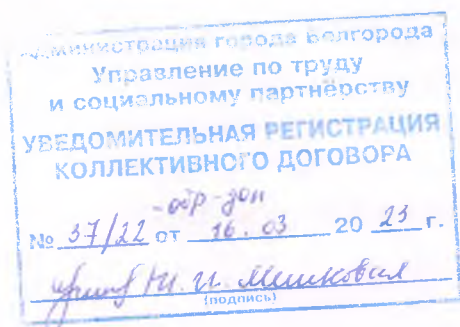 Администрация города Белгорода
Управление по труду
и социальному партнёрству
УВЕДОМИТЕЛЬНАЯ РЕГИСТРАЦИЯ
КОЛЛЕКТИВНОГО ДОГОВОРА
-обр-доп
№ 37/22 от 16.03 2023 г.
Н. И. Мишковая
(подпись)